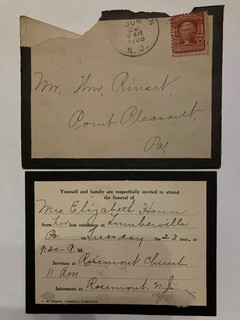 JUN
8 AM
1908
N. J.
Mr. Wm. Rinart
Point Pleasant
Pa
Yourself and family are respectfully invited to attend
the funeral of
Mrs Elizabeth
from her late residence at Lumberville
Pa on Tuesday the 23 inst., at
9:30 A.M.
Services at Rosemont Church
11 Am.
Interment at Rosemont N.J.